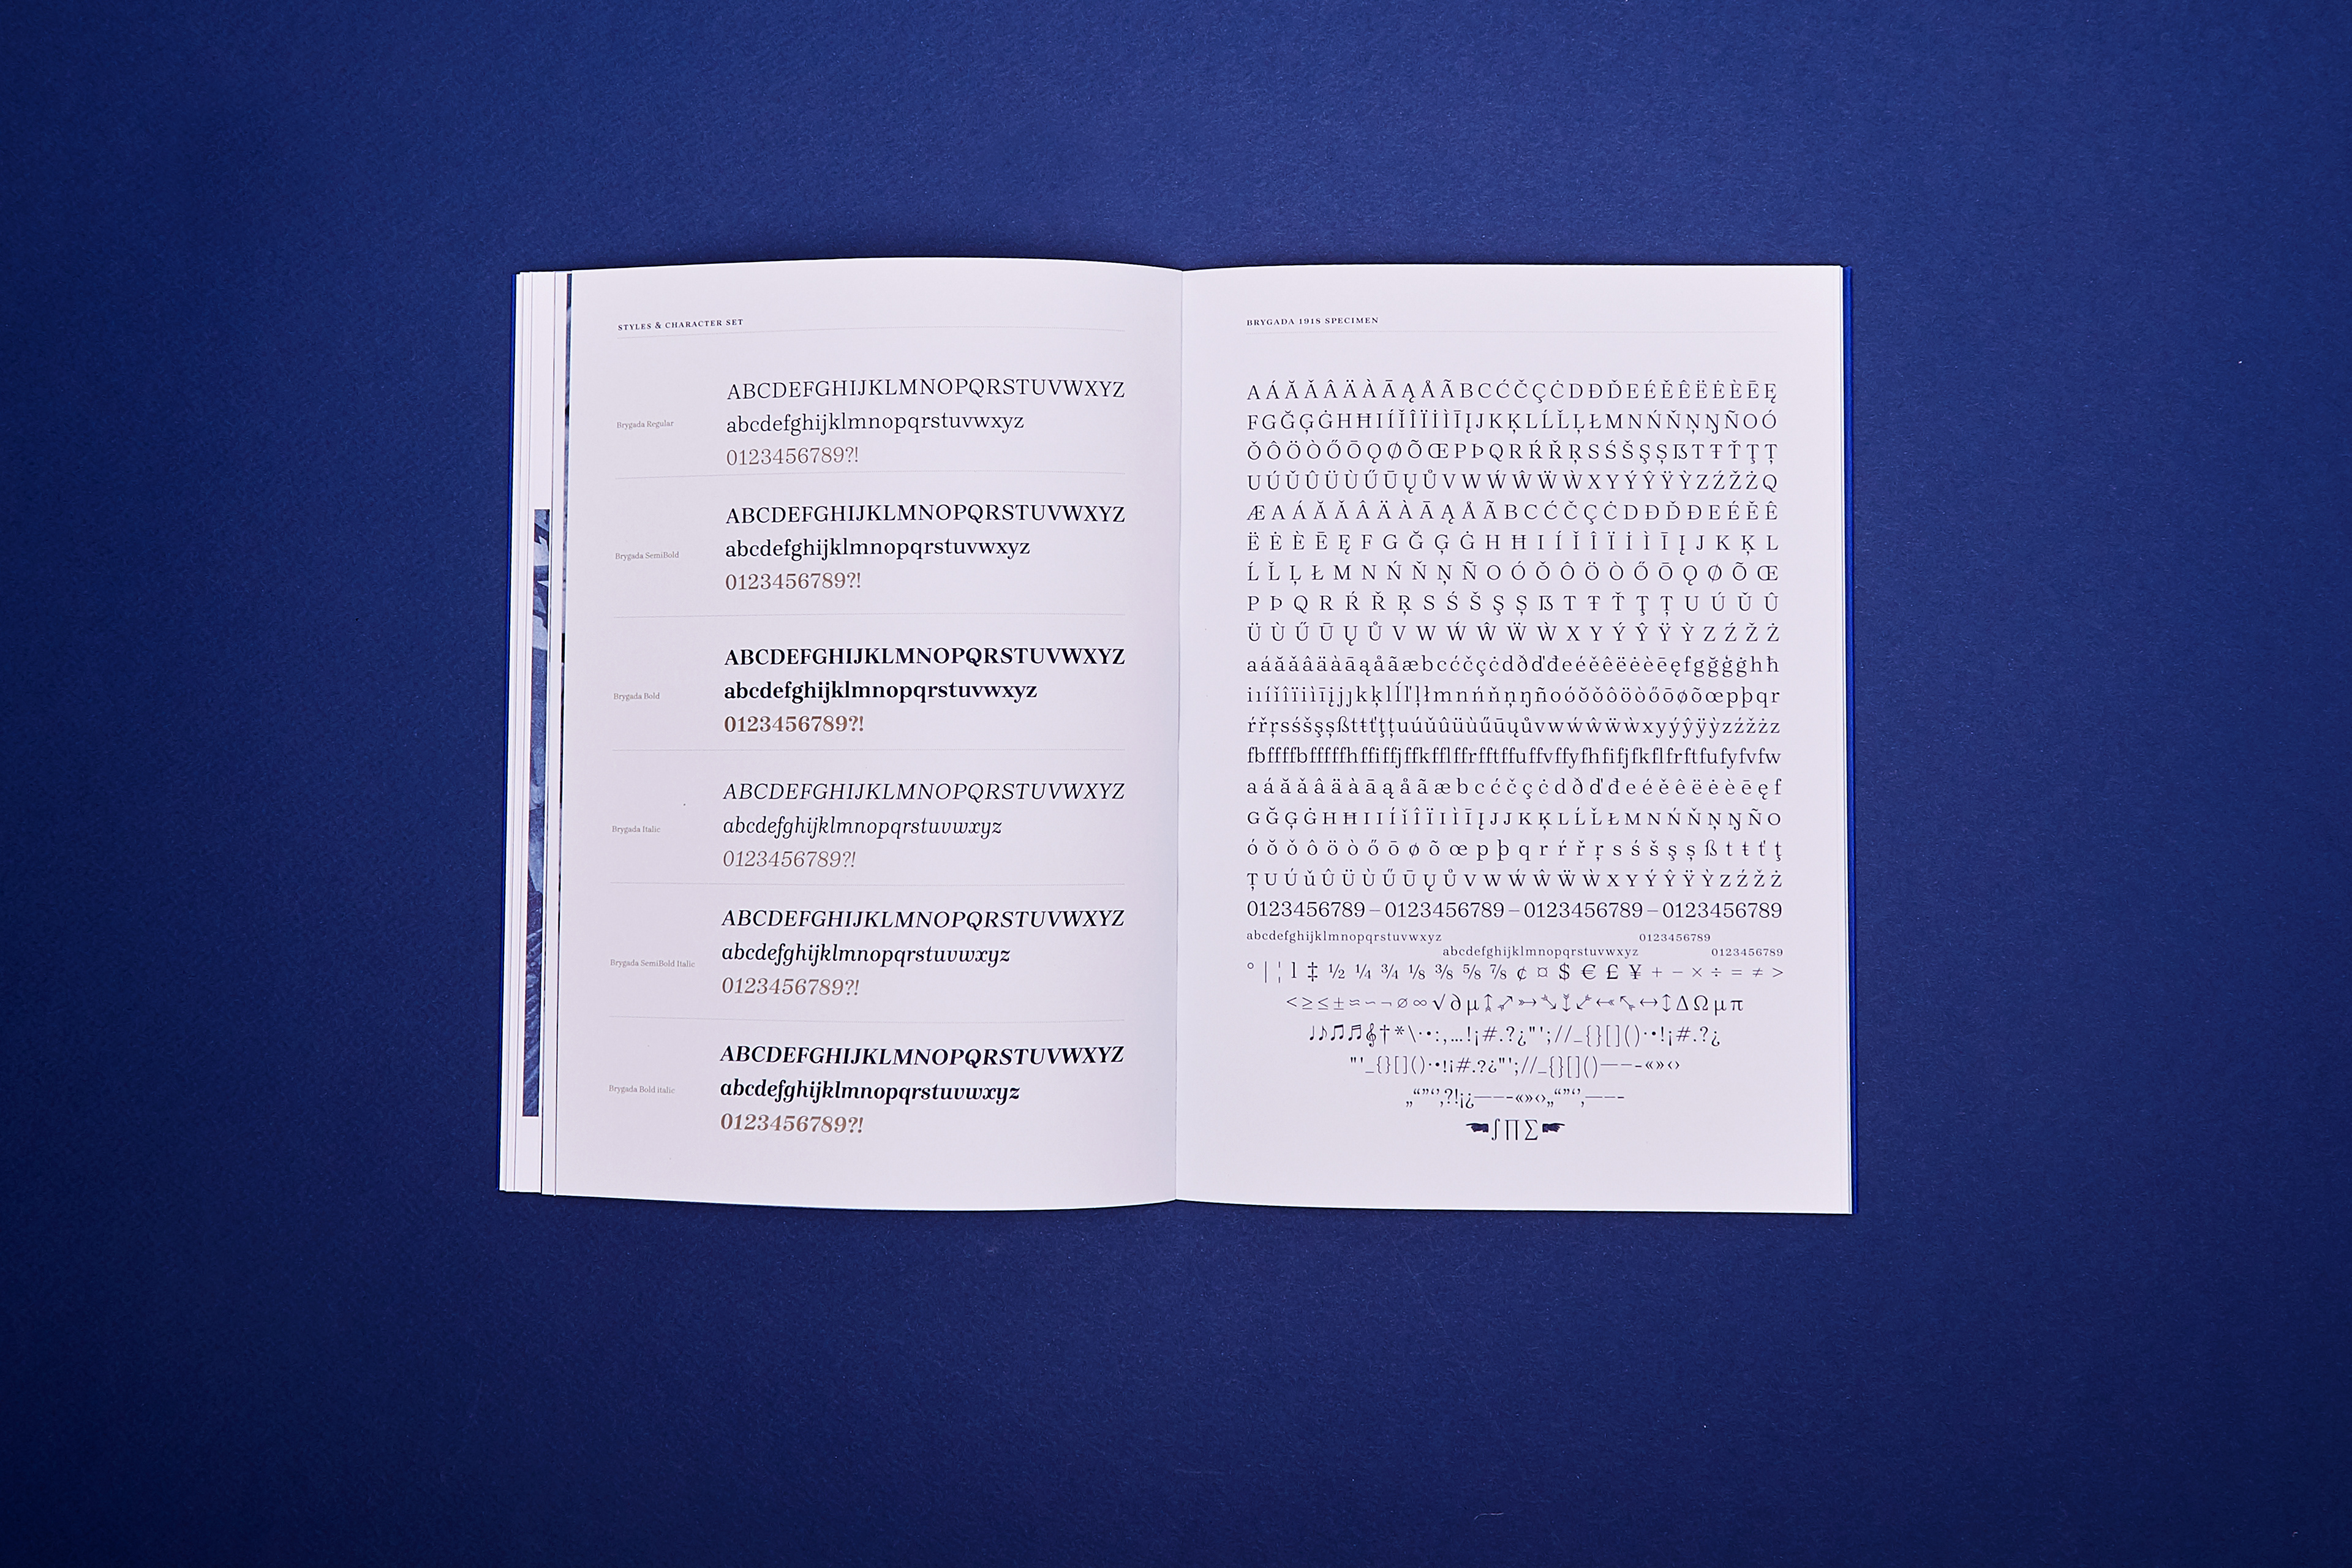 STYLES & CHARACTER SET
Brygada Regular
ABCDEFGHIJKLMNOPQRSTUVWXYZ
abcdefghijklmnopqrstuvwxyz
0123456789?!
Brygada SemiBold
ABCDEFGHIJKLMNOPQRSTUVWXYZ
abcdefghijklmnopqrstuvwxyz
0123456789?!
Brygada Bold
ABCDEFGHIJKLMNOPQRSTUVWXYZ
abcdefghijklmnopqrstuvwxyz
0123456789?!
Brygada Italic
ABCDEFGHIJKLMNOPQRSTUVWXYZ
abcdefghijklmnopqrstuvwxyz
0123456789?!
Brygada SemiBold Italic
ABCDEFGHIJKLMNOPQRSTUVWXYZ
abcdefghijklmnopqrstuvwxyz
0123456789?!
Brygada Bold italic
ABCDEFGHIJKLMNOPQRSTUVWXYZ
abcdefghijklmnopqrstuvwxyz
0123456789?!
BRYGADA 1918 SPECIMEN
AÁĂǍÂÄÀĀĄÅÃBCĆČÇĊDĐĎEÉĚÊËĖÈĒĘ
FGĞĢĠHĦIÍǏÎÏİÌĪĮJKĶLĹĽĻŁMNŃŇŅŊÑOÓ
ǑÔÖÒŐŌǪØÕŒPÞQRŔŘŖSŚŠŞȘẞTŦŤŢȚ
UÚǓÛÜÙŰŪŲŮVWẂŴẄẀXYÝŶŸỲZŹŽŻQ
ÆAÁĂǍÂÄÀĀĄÅÃBCĆČÇĊDĐĎÐEÉĚÊ
ËĖÈĒĘFGĞĢĠHĦIÍǏÎÏİÌĪĮJKĶL
ĹĽĻŁMNŃŇŅÑOÓǑÔÖÒŐŌǪØÕŒ
PÞQRŔŘŖSŚŠŞȘẞTŦŤŢȚUÚǓÛ
ÜÙŰŪŲŮVWẂŴẄẀXYÝŶŸỲZŹŽŻ
aáăǎâäàāąåãæbcćčçċdðďđeéěêëėèēęfgğģġhħ
iıíǐîïiìīįjȷkķlĺľļłmnńňņŋñoóǒôöòőōøõœpþqr
ŕřŗsśšşșßtŧťţțuúǔûüùűūųůvwẃŵẅẁxyýŷÿỳzźžżz
fbffffbfffffhffiffjffkfflffrfftffuffvffyfhfifjfkflfrftfufyfvfw
aáăǎâäàāąåãæbcćčçċdðďđeéěêëėèēęf
GĞĢĠHĦIIÍǐÎÏIÌĪĮJJKĶLĹĽŁMNŃŇŅŊÑO
óǒǒôöòőōøõœpþqrŕřŗsśšşșßtŧťţ
ȚUÚǔÛÜÙŰŪŲŮVWẂŴẄẀXYÝŶŸỲZŹŽŻ
0123456789–0123456789–0123456789–0123456789
abcdefghijklmnopqrstuvwxyz 0123456789
abcdefghijklmnopqrstuvwxyz 0123456789
° | ¦ l ‡ ½ ¼ ¾ ⅛ ⅜ ⅝ ⅞ ¢ ¤ $ € £ ¥ + − × ÷ = ≠ >
<≥≤±≈~¬∅∞√∂µ↕↗→↘↕↙←↖↔↕∆Ωμπ
♩♪♫♬𝄞†*\·•:,…!¡#.?¿"';//_{}[]()·•!¡#.?¿
"'_{}[]()·•!¡#.?¿"';//_{}[]()——-«»‹›
„“”‘’,?!¡¿——-«»‹›„“”‘’,——-
☚∫∏∑☛